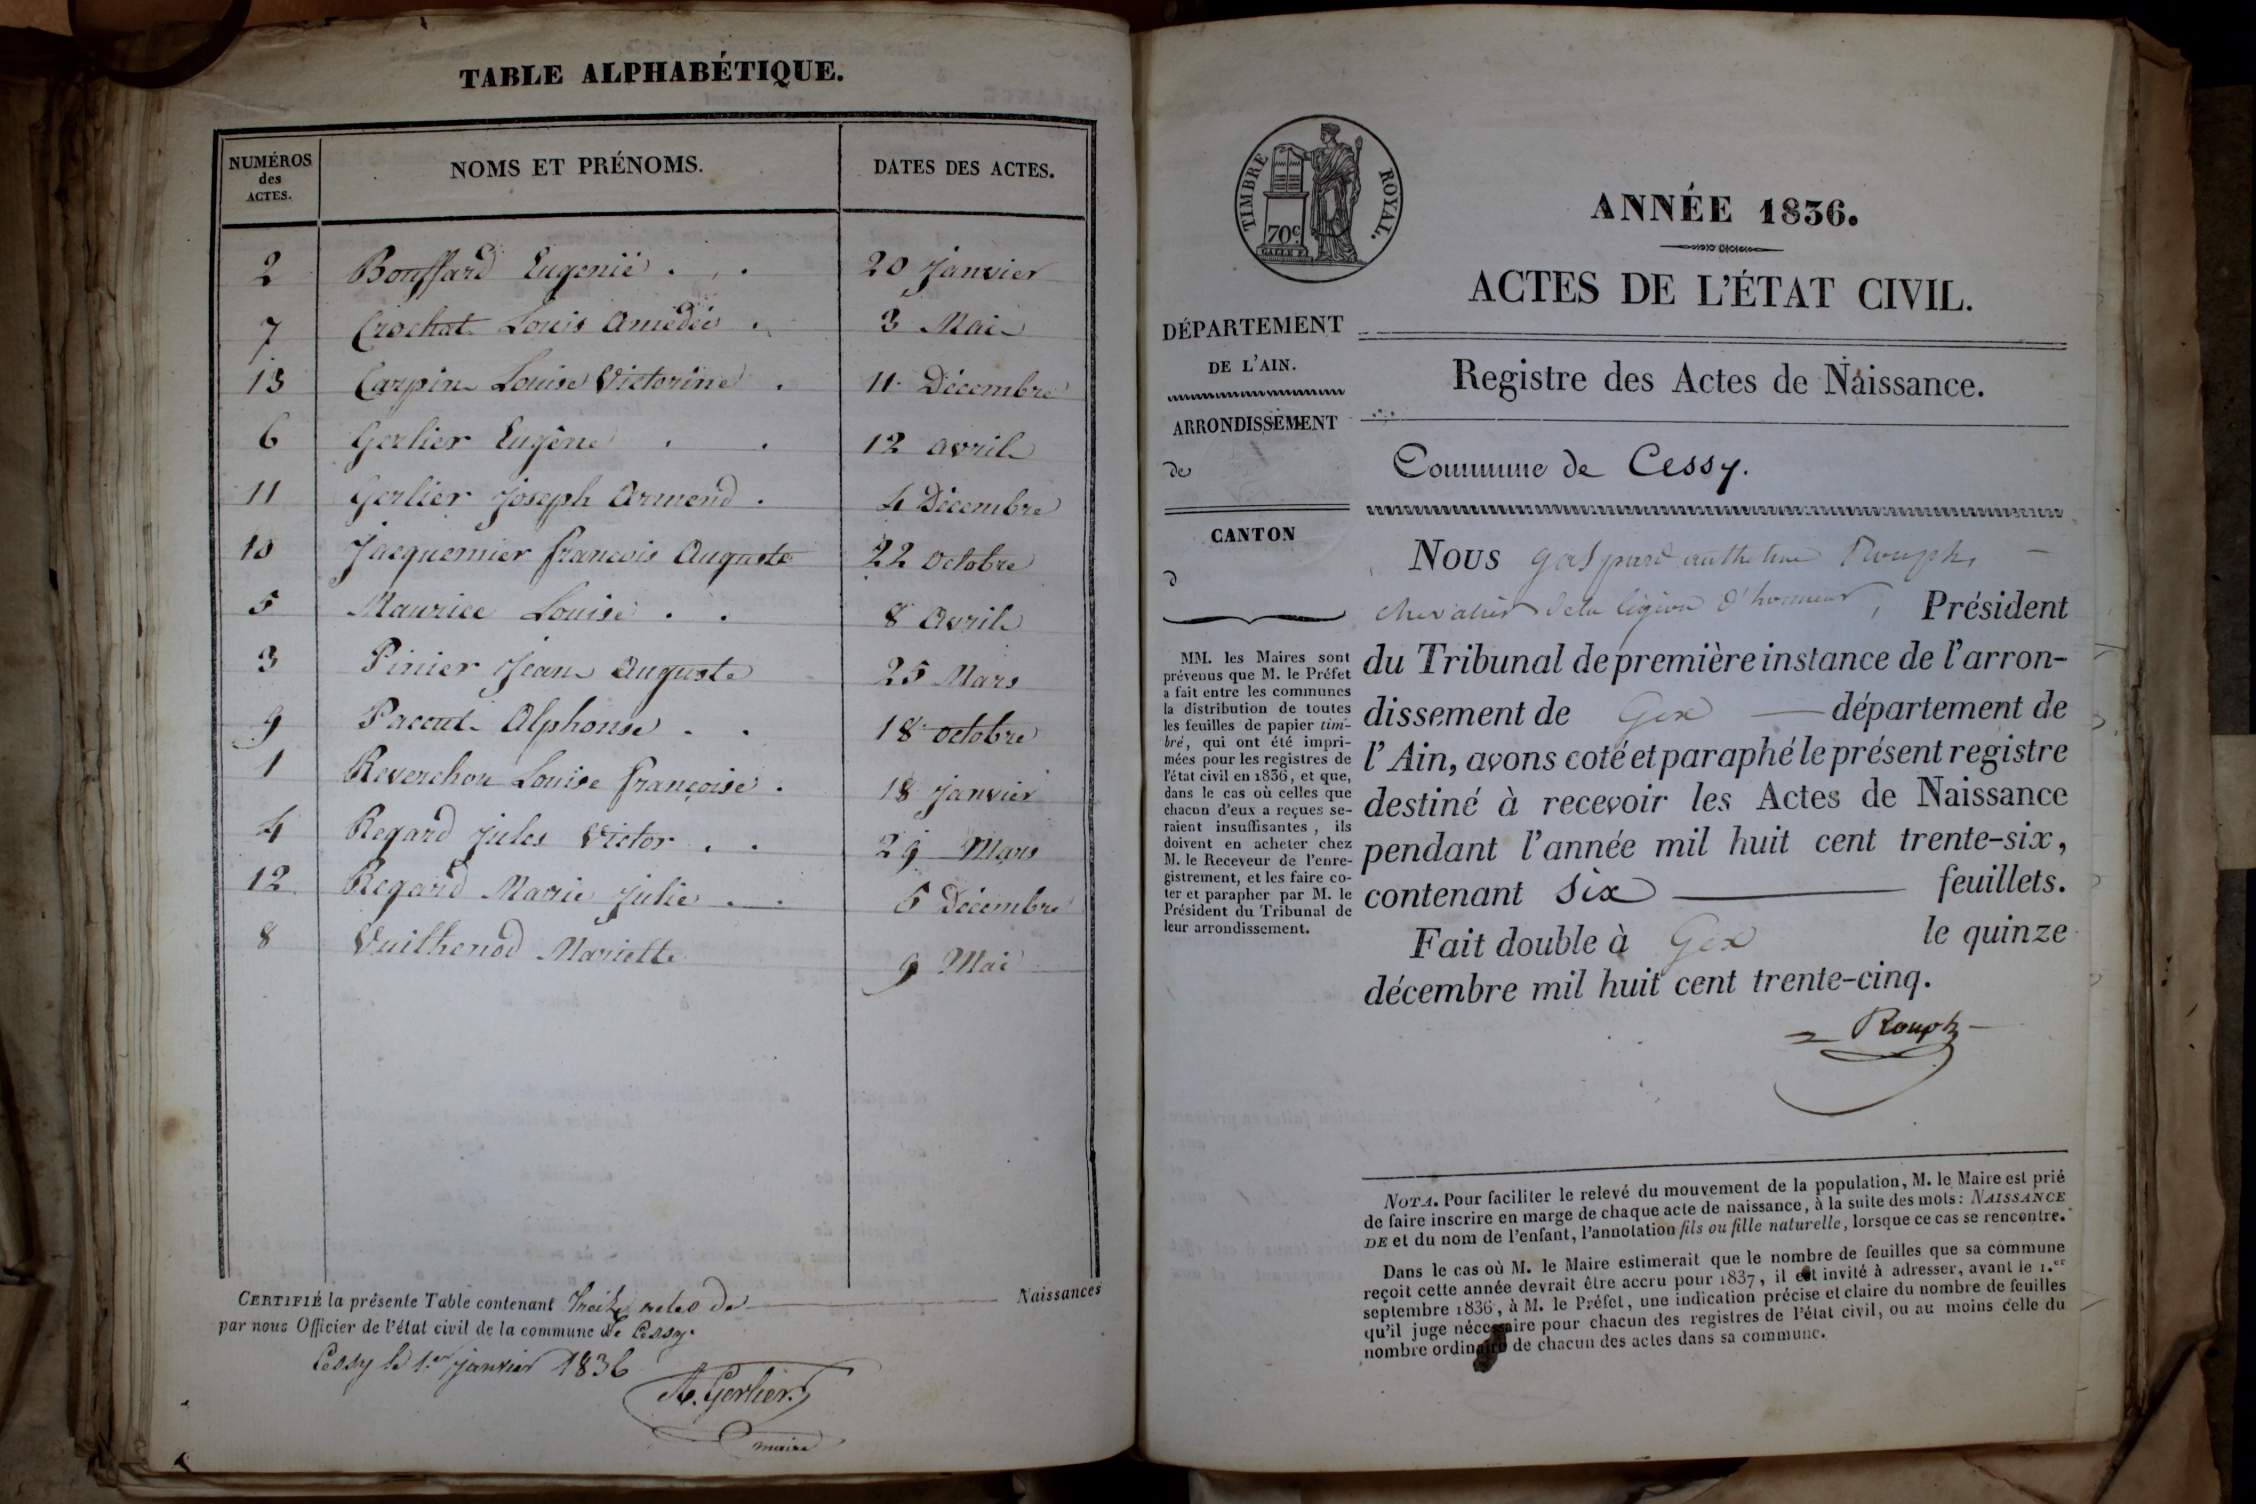 TABLE ALPHABÉTIQUE.
NUMÉROS des ACTES. NOMS ET PRÉNOMS. DATES DES ACTES.
2 Bouffard Eugenie . . 20 janvier
7 Crochat Louis Amédée . 3 Mai
13 Carpin Louise Victorine . 11 Décembre
6 Gerlier Eugène . . 12 avril
11 Gerlier Joseph Armend . 4 Décembre
10 Jacquemier françois Auguste 22 octobre
5 Maurice Louise . . 8 avril
3 Pinier Jean Auguste 25 Mars
9 Paccut Alphonse . . 18 octobre
1 Reverchon Louise françoise . 18 janvier
4 Regard Jules Victor . . 29 Mars
12 Regard Marie Julie . . 6 Décembre
8 Vuilhenod Mariette 9 Mai
CERTIFIÉ la présente Table contenant Treize actes de Naissances
par nous Officier de l'état civil de la commune de Cessy.
Cessy le 1.er janvier 1836
A. Gerlier
maire
TIMBRE ROYAL.
70c.
ANNÉE 1836.
ACTES DE L'ÉTAT CIVIL.
DÉPARTEMENT
DE L'AIN.
Registre des Actes de Naissance.
ARRONDISSEMENT
de
Commune de Cessy.
CANTON
d
MM. les Maires sont
prévenus que M. le Préfet
a fait entre les communes
la distribution de toutes
les feuilles de papier tim-
bré, qui ont été impri-
mées pour les registres de
l'état civil en 1836, et que,
dans le cas où celles que
chacun d'eux a reçues se-
raient insuffisantes, ils
doivent en acheter chez
M. le Receveur de l'enre-
gistrement, et les faire co-
ter et parapher par M. le
Président du Tribunal de
leur arrondissement.
Nous gaspard anthelme Rouph,
chevalier de la légion d'honneur, Président
du Tribunal de première instance de l'arron-
dissement de Gex département de
l'Ain, avons coté et paraphé le présent registre
destiné à recevoir les Actes de Naissance
pendant l'année mil huit cent trente-six,
contenant six feuillets.
Fait double à Gex le quinze
décembre mil huit cent trente-cinq.
Rouph
NOTA. Pour faciliter le relevé du mouvement de la population, M. le Maire est prié
de faire inscrire en marge de chaque acte de naissance, à la suite des mots: NAISSANCE
DE et du nom de l'enfant, l'annotation fils ou fille naturelle, lorsque ce cas se rencontre.
Dans le cas où M. le Maire estimerait que le nombre de feuilles que sa commune
reçoit cette année devrait être accru pour 1837, il est invité à adresser, avant le 1.er
septembre 1836, à M. le Préfet, une indication précise et claire du nombre de feuilles
qu'il juge nécessaire pour chacun des registres de l'état civil, ou au moins celle du
nombre ordinaire de chacun des actes dans sa commune.